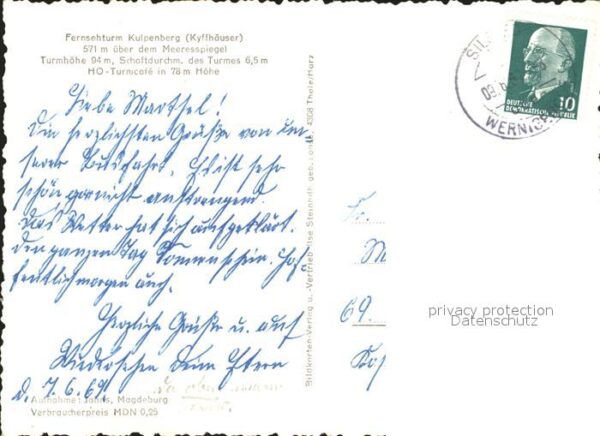 Fernsehturm Kulpenberg (Kyffhäuser)
571 m über dem Meeresspiegel
Turmhöhe 94 m, Schaftdurchm. des Turmes 6,5 m
HO-Turmcafé in 78 m Höhe
Liebe Marthel!
Die herzlichsten Grüße von un
serer Busfahrt. Es ist sehr
schön, garnicht anstrengend.
Das Wetter hat sich aufgeklärt.
Den ganzen Tag Sonnenschein. Hof-
fentlich morgen auch.
Herzliche Grüße u. auf
Wiedersehen Deine Eltern
d. 7.6.69.
Aufnahme: Jahns, Magdeburg
Verbraucherpreis MDN 0,25
Bildkarten-Verlag u. -Vertrieb Ilse Steinhilf, geb. 4308 Thale/Harz
DEUTSCHE
DEMOKRATISCHE REPUBLIK
10
WERNIGE
Fr.
M
69.
privacy protection
Datenschutz